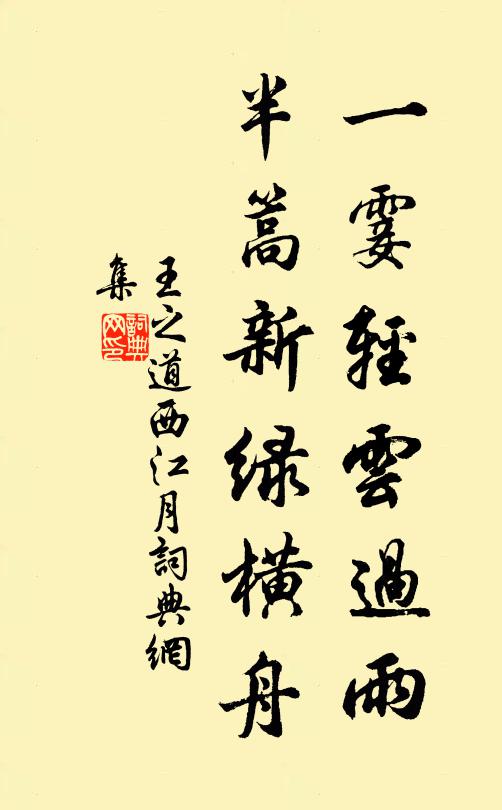 一霎輕雲過雨
半篙新綠橫舟
王之道西江月詞典網
集
詞典
网印